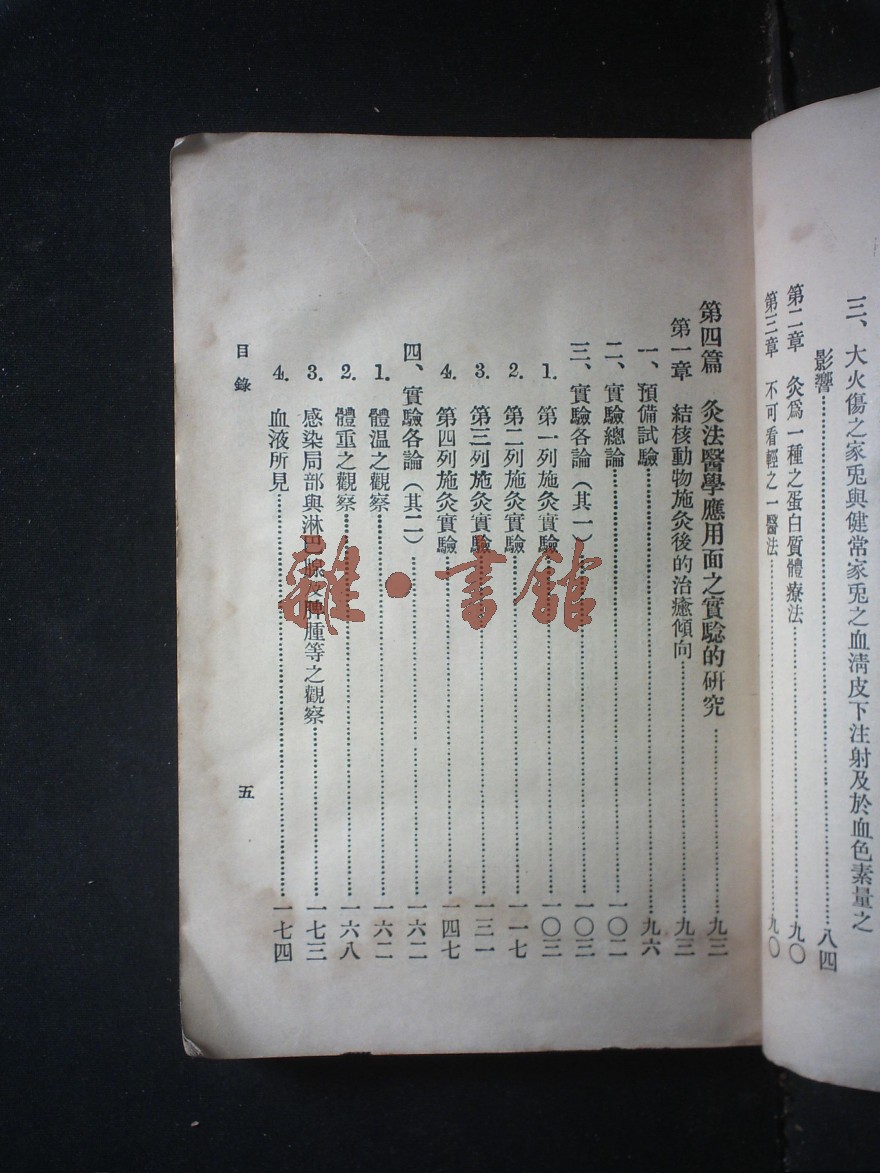 三、大火傷之家兎與健常家兎之血清皮下注射及於血色素量之
影響……八四
第二章 灸爲一種之蛋白質體療法……九〇
第三章 不可看輕之一醫法……九〇
第四篇 灸法醫學應用面之實驗的研究……九三
第一章 結核動物施灸後的治癒傾向……九三
一、預備試驗……九六
二、實驗總論……一〇二
三、實驗各論（其一）……一〇三
1. 第一列施灸實驗……一〇三
2. 第二列施灸實驗……一一七
3. 第三列施灸實驗……一三一
4. 第四列施灸實驗……一四七
四、實驗各論（其二）……一六二
1. 體温之觀察……一六二
2. 體重之觀察……一六八
3. 感染局部與淋巴腺及脾腫等之觀察……一七三
4. 血液所見……一七四
目錄
五
雜·書館